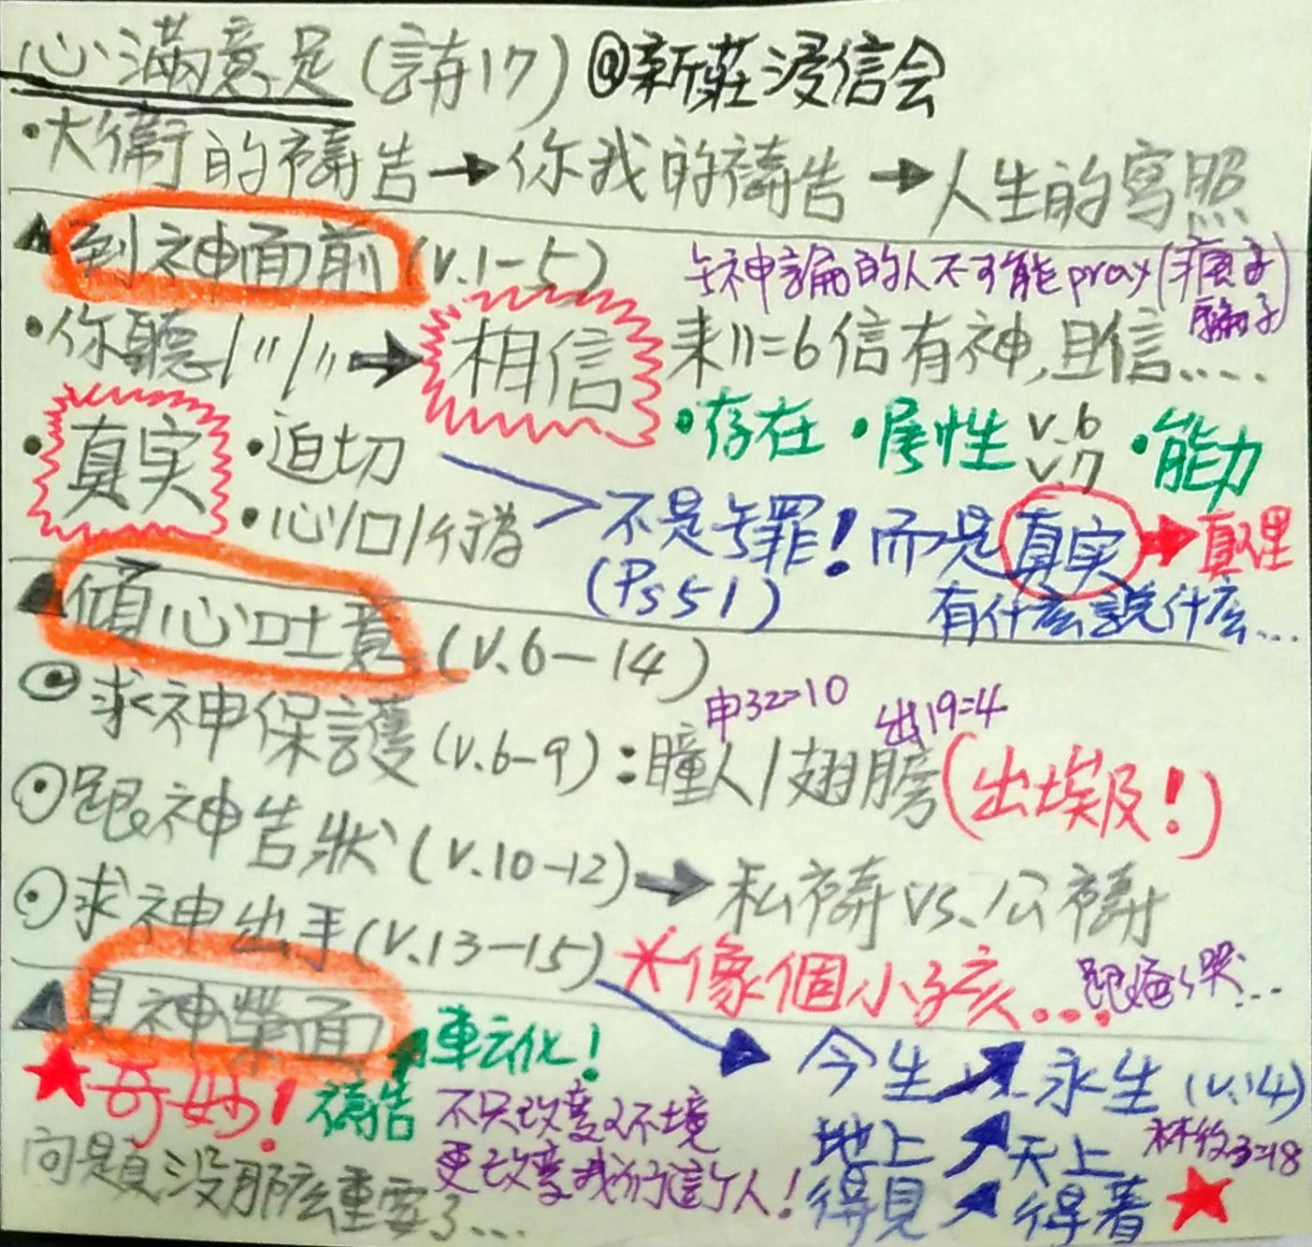 心滿意足 (詩17) @新莊浸信会
•大衛的禱告→你我的禱告→人生的寫照
▲到神面前 (v.1-5)
无神論的人不可能pray(瘋子
騙子)
•你聽/〃/〃→相信 來11=6信有神,且信.....
•存在 •属性 v.6 v.7 •能力
•真实 •迫切
•心/口/行為
不是无罪!而是真实→真理
(Ps51) 有什么說什么...
▲傾心吐意 (v.6-14)
申32=10 出19=4
⊙求神保護(v.6-9):瞳人/翅膀(出埃及!)
⊙跟神告狀(v.10-12)→私禱vs.公禱
⊙求神出手(v.13-15) *像個小孩... 跟爸爸哭...
▲見神榮面
→今生↗永生 (v.14)
地上↗天上 林後3=18
得見↗得著★
★奇妙!禱告 轉化!
不只改變环境
更改變我们這个人!
问題没那么重要了...